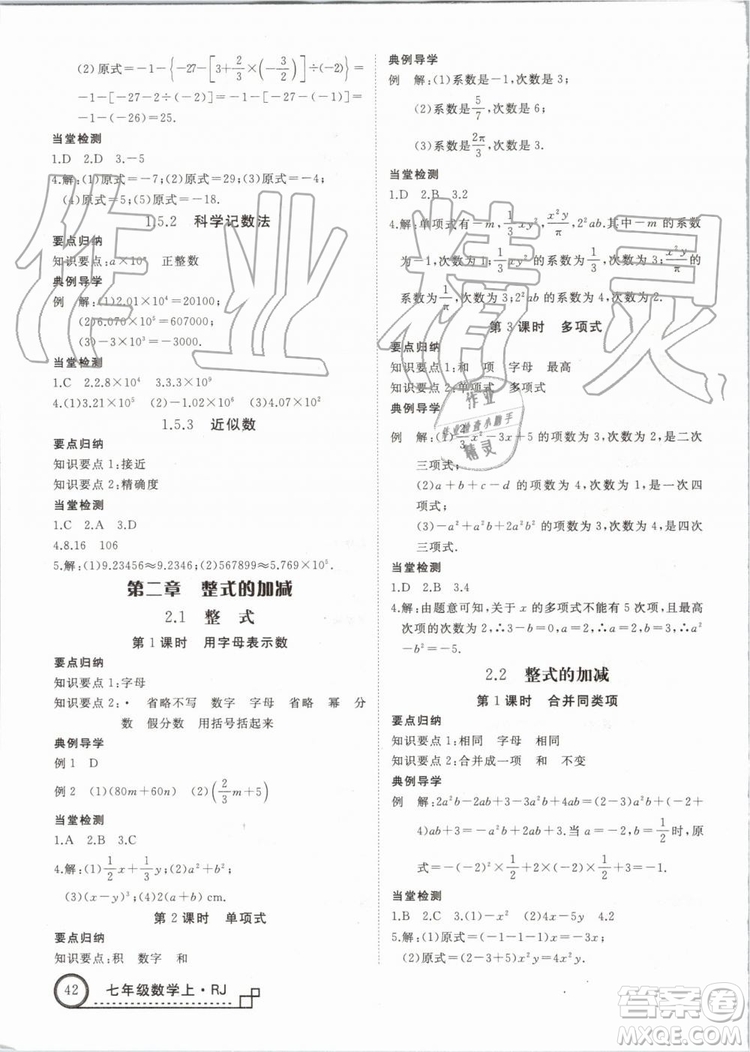 (2)原式=-1-{-27-[3+2/3×(-3/2)]÷(-2)}=
-1-[-27-2÷(-2)]=-1-[-27-(-1)]=
-1-(-26)=25.
当堂检测
1.D 2.D 3.-5
4.解:(1)原式=-7;(2)原式=29;(3)原式=-1;
(4)原式=5;(5)原式=-18.
1.5.2 科学记数法
要点归纳
知识要点:a×10ⁿ 正整数
典例导学
例 解:(1)2.01×10⁴=20100;
(2)6.070×10⁵=607000;
(3)-3×10³=-3000.
当堂检测
1.C 2.2.8×10⁴ 3.3.3×10⁹
4.(1)3.21×10⁵;(2)-1.21×10⁷
1.5.3 近似数
要点归纳
知识要点1:接近
知识要点2:精确度
当堂检测
1.C 2.A 3.D
4.8.16 106
5.解:(1)9.23456≈9.2346;(2)567899≈5.769×10⁵.
第二章 整式的加减
2.1 整 式
第1课时 用字母表示数
要点归纳
知识要点1:字母
知识要点2:· 省略不写 数字 字母 省略 幂 分
数 假分数 用括号括起来
典例导学
例1 D
例2 (1)(80m+60n) (2)(2/3 m)
当堂检测
1.A 2.B 3.C
4.解:(1)1/2 x+1/3 y;(2)a²+b²;
(3)(x-y)³;(4)2(a+b) cm.
第2课时 单项式
要点归纳
知识要点:积 数字 和
42 七年级数学上·RJ
典例导学
例 解:(1)系数是-1,次数是3;
(2)系数是5/7,次数是6;
(3)系数是2π/3,次数是3.
当堂检测
1.D 2.B 3.2
4.解:单项式有-m,1/3 xy²,x²y/π,2²ab.其系数分别
为-1,1/3,1/π,2²;1/3 xy²,x²y/π的次数为3,1/3 xy²的
系数为1/3;2²ab的系数为2²,次数为2.
第3课时 多项式
要点归纳
知识要点1:和 项 字母 最高
知识要点2:单项式 多项式
典例导学
例 解:(1)2/3 x²-3x+5的项数为3,次数为2,是二次
三项式;
(2)a+b+c-d的项数为4,次数为1,是一次四项
式;
(3)-a²+a²b+2a²b²的项数为3,次数为4,是四次
三项式.
当堂检测
1.D 2.B 3.4
4.解:由题意可知,关于x的多项式不能有5次项,且最高
次项的次数为4,所以2-b=0,a+3=0,所以a=
-3,b=2,所以a-b=-3-2=-5.
2.2 整式的加减
第1课时 合并同类项
要点归纳
知识要点1:相同 字母 相同
知识要点2:合并成一项 和 不变
典例导学
例 解:2a²b-2ab+3-3a²b+4ab=(2-3)a²b+(-2
+4)ab+3=-a²b+2ab+3,当a=-2,b=1/2时,原
式=-(-2)²×1/2+2×(-2)×1/2+3=-1.
当堂检测
1.B 2.C 3.(1)-x² (2)4x-5y 4.2
5.解:(1)原式=(-4-9)x²y+(8-21)xy²=-13x²y-13xy²;
(2)原式=(2-3+5)x²+(-1+4-2)x+(1-2)
=4x²+x-1.
作业精灵
作业
作业检查小助手
精灵
答案圈
MXQE.COM